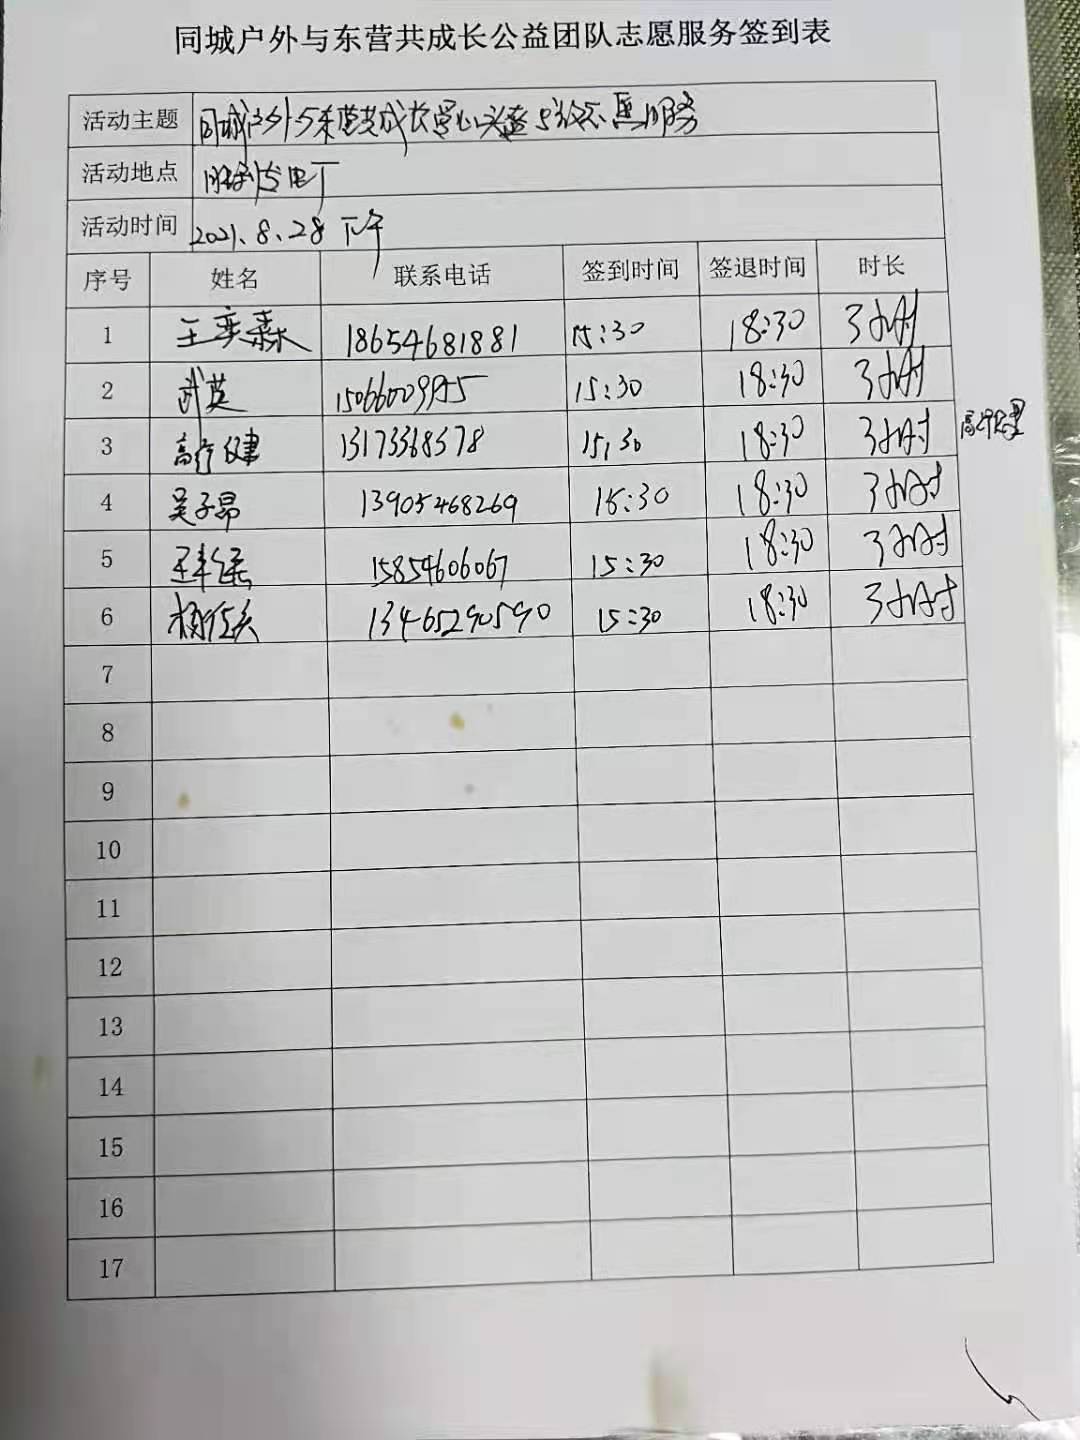 同城户外与东营共成长公益团队志愿服务签到表
活动主题 同城户外与东营共成长爱心义卖与志愿服务
活动地点
活动时间 2021.8.28 下午
序号 姓名 联系电话 签到时间 签退时间 时长
1 王奕森 18654681881 15:30 18:30 3小时
2 武英 15:30 18:30 3小时
3 高行健 13173368378 15:30 18:30 3小时
4 吴子昂 13905468269 15:30 18:30 3小时
5 15854606067 15:30 18:30 3小时
6 13465290590 15:30 18:30 3小时
7
8
9
10
11
12
13
14
15
16
17